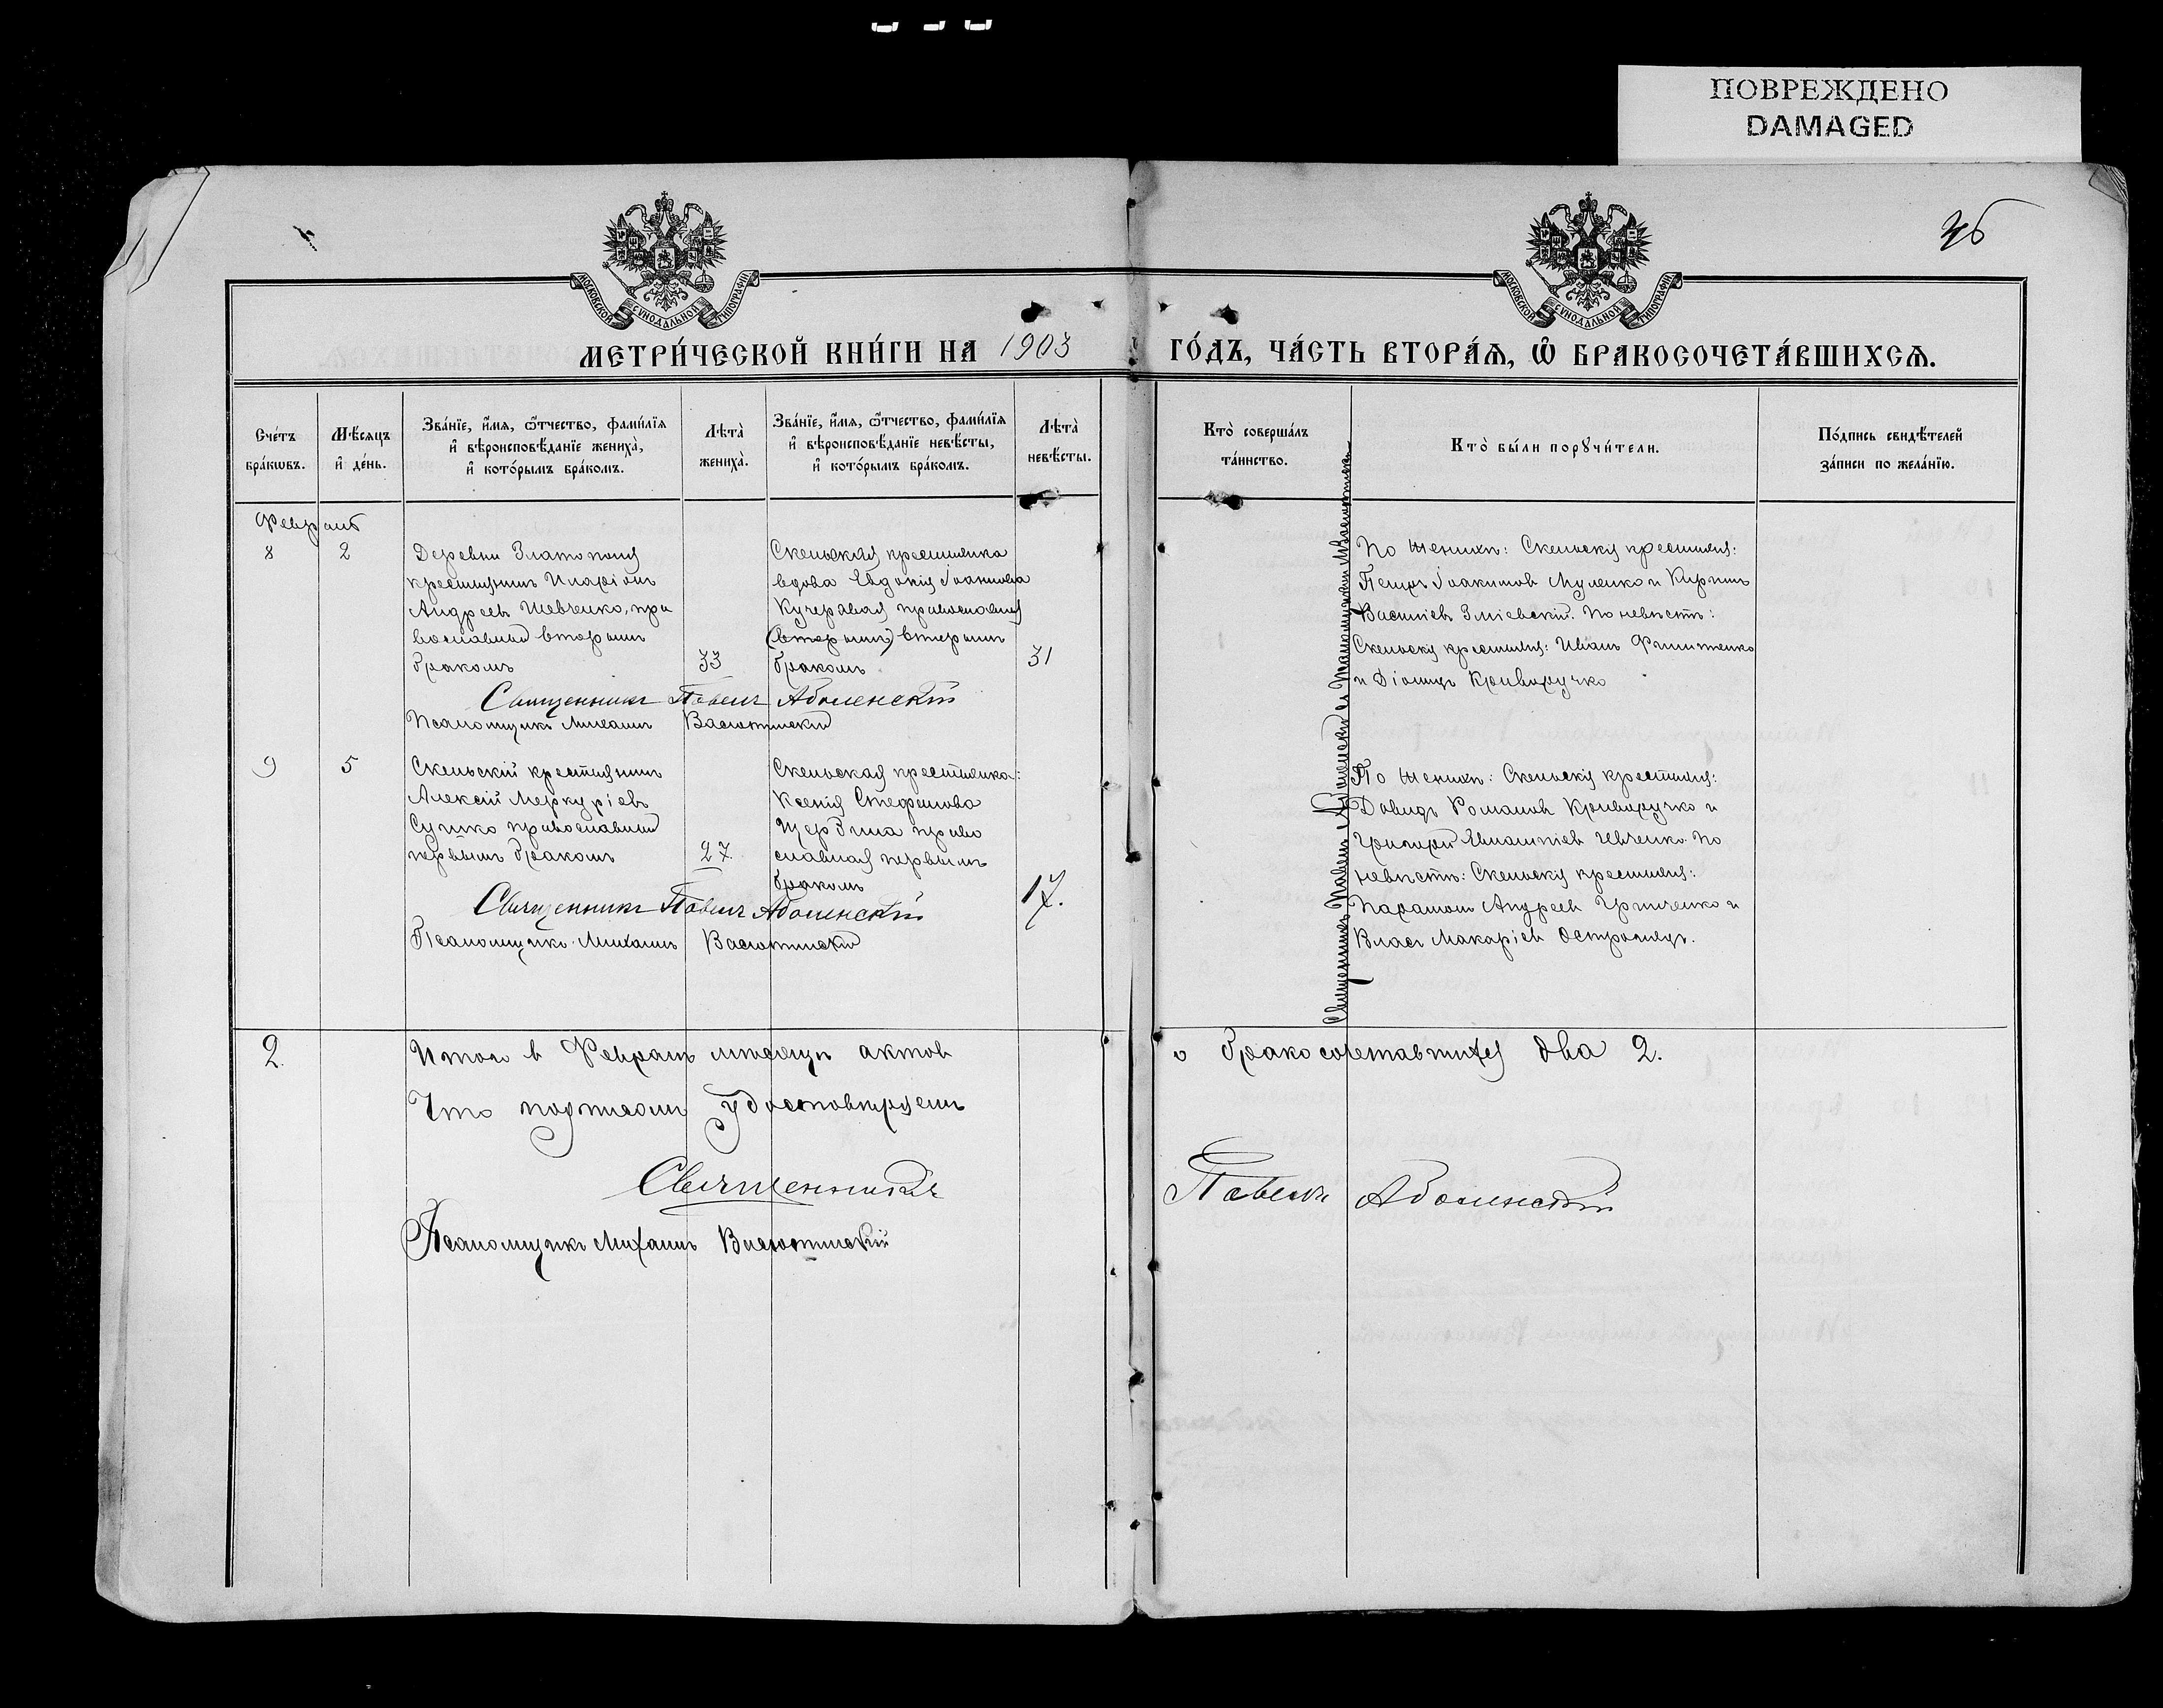 ПОВРЕЖДЕНО
DAMAGED
36
МОСКОВСКОЙ СѴНОДАЛЬНОЙ ТИПОГРАФІИ
МОСКОВСКОЙ СѴНОДАЛЬНОЙ ТИПОГРАФІИ
МЕТРИ́ЧЕСКОЙ КНИ́ГИ НА 1903 ГО́ДЪ, ЧА́СТЬ ВТОРА́Ѧ, Ѽ БРАКОСОЧЕТА́ВШИХСѦ.
Сче́тъ
бра́кѡвъ.
Мѣ́сяцъ
и҆ де́нь.
Зва́нїе, и҆́мѧ, ѻ҆́тчество, фами́лїѧ
и҆ вѣроисповѣ́данїе жениха̀,
и҆ кото́рымъ бра́комъ.
Лѣта̀
жениха̀.
Зва́нїе, и҆́мѧ, ѻ҆́тчество, фами́лїѧ
и҆ вѣроисповѣ́данїе невѣ́сты,
и҆ кото́рымъ бра́комъ.
Лѣта̀
невѣ́сты.
Кто̀ соверша́лъ
та́инство.
Кто̀ бы́ли порꙋчи́тели.
По́дпись свидѣ́телей
за́писи по жела́нїю.
Февраль
8
2
Деревни Златополя
крестьянинъ Иларіонъ
Андреевъ Шевченко, пра
вославный вторымъ
бракомъ
33
Скельская крестьянка
вдова Евдокія Іоаннова
Кучерявая православная
(вторымъ) вторымъ
бракомъ
31
По женихѣ: Скельскія крестьяня:
Іоакимовъ и Кирилъ
Василіевъ Зміевскій. По невѣстѣ:
Скельскія крестьяня: Иванъ Филипенко
и Діонисъ Криворучко
Священникъ Павелъ Аболенскій
Псаломщикъ Михаилъ Васютинскій
9
5
Скельскій крестьянинъ
Алексій Меркуріевъ
Сушко православный
первымъ бракомъ
27
Скельская крестьянка:
Ксенія Стефанова
Щербина право
славная первымъ
бракомъ
17.
По женихѣ: Скельскія крестьяня:
Давидъ Романовъ Криворучко и
Григорій Шевченко. По
невѣстѣ: Скельскія крестьяня:
Андреевъ Гриченко и
Власъ Макаріевъ
Священникъ Павелъ Аболенскій
Псаломщикъ Михаилъ Васютинскій
Священникъ Павелъ Аболенскій с Псаломщикомъ М. Васютинскимъ
2.
Итого в Февралѣ мѣсяцѣ актовъ о бракосочетавшихся два 2.
Что подписомъ удостовѣряемъ
Священникъ Павелъ Аболенскій
Псаломщикъ Михаилъ Васютинскій